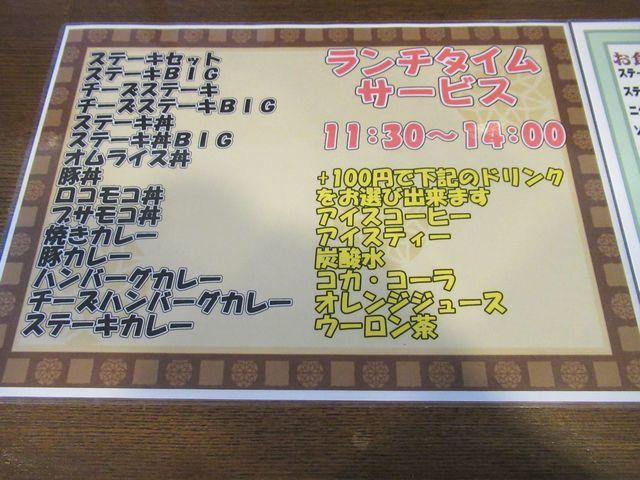 ステーキセット
ステーキBIG
チーズステーキ
チーズステーキBIG
ステーキ丼
ステーキ丼BIG
オムライス丼
豚丼
ロコモコ丼
ブサモコ丼
焼きカレー
豚カレー
ハンバーグカレー
チーズハンバーグカレー
ステーキカレー
ランチタイム
サービス
11:30～14:00
+100円で下記のドリンク
をお選び出来ます
アイスコーヒー
アイスティー
炭酸水
コカ・コーラ
オレンジジュース
ウーロン茶